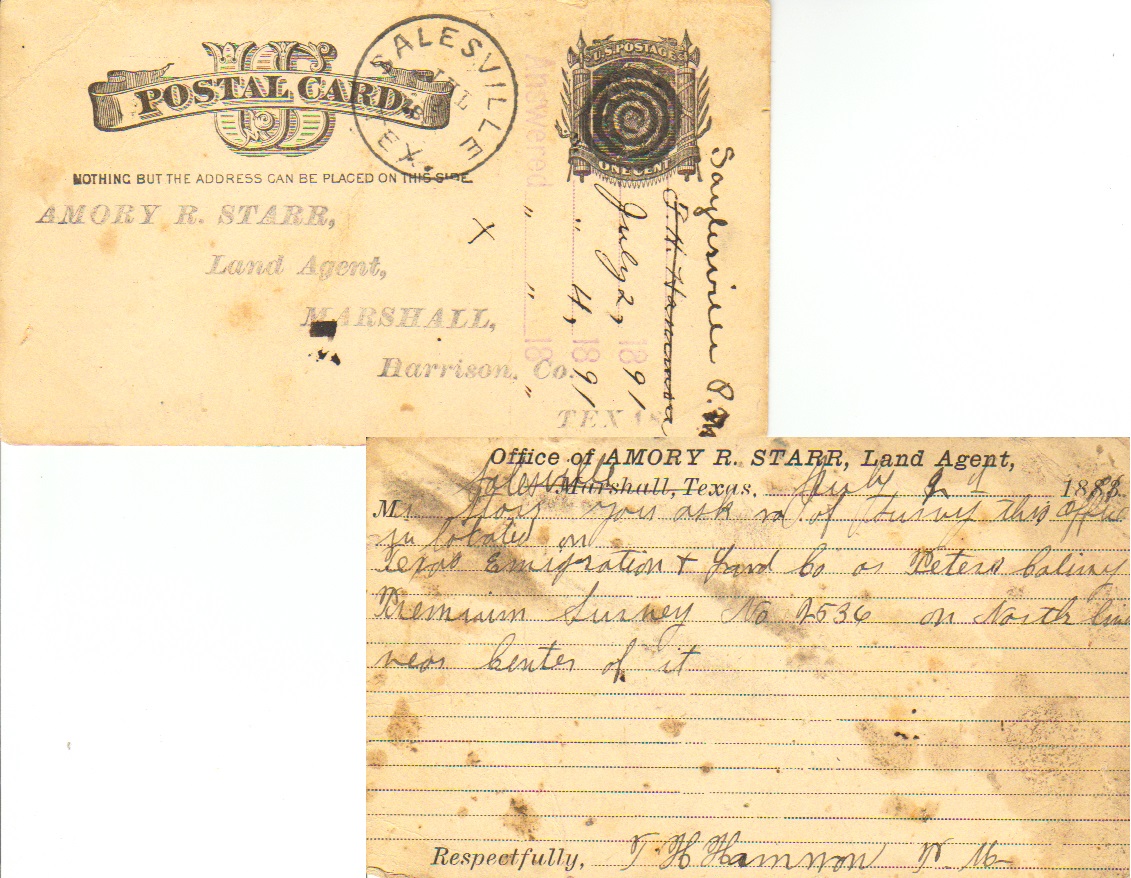 US
POSTAL CARD
SALESVILLE
JUL
TEX.
U.S. POSTAGE
ONE CENT
NOTHING BUT THE ADDRESS CAN BE PLACED ON THIS SIDE.
AMORY R. STARR,
Land Agent,
MARSHALL,
Harrison, Co.
TEXAS
X
Saylesville P.M
T. H. Hammon
July 2, 1891
" 4, 1891
Answered " " 18 "
Office of AMORY R. STARR, Land Agent,
Salesville
Marshall, Texas, July 2d 188
Mr Starr you ask no of Survey this office
is located on
Texas Emigration & Land Co or Peters Coloney
Premium Survey No 2536 on North line
near Center of it
Respectfully, T H Hammon P M